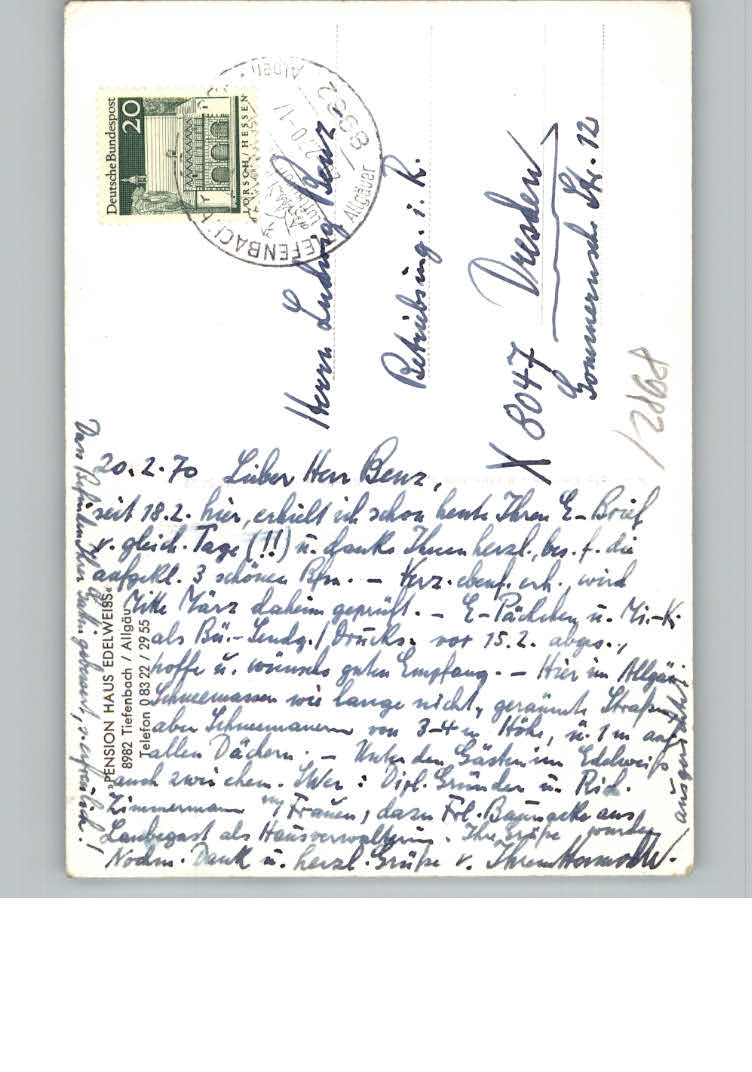 Deutsche Bundespost
20
LORSCH / HESSEN
8982
TIEFENBACH
Allgäuer
Herrn Ludwig Benz
Betriebsing. i. R.
X 8047 Dresden
Str. 12
20.2.70 Lieber Herr Benz,
seit 18.2. hier, erhielt ich schon heute Ihren E-Brief
v. gleich. Tage (!!) u. danke Ihnen herzl., bes. f. die
aufgekl. 3 schönen Bfm. – Verz. ebenf. erh. wird
Mitte März daheim geprüft. – E-Päckchen u. Mi.-K.
als Bü.-Sendg./Drucks. vor 15.2. abges.,
hoffe u. wünsche guten Empfang. – Hier im Allgäu
Schneemassen wie lange nicht, geräumte Straßen
aber Schneemauern von 3-4 m Höhe, u. 1 m auf
allen Dächern. – Unter den Gästen im Edelweiß
auch zwei ehem. : Dipl. Gründer u. Rich.
Zimmermann m/ Frauen, dazu Frl. aus
Laubegast als Hausverwalterin. Ihre Grüße wurden
ausgerichtet
Nochm. Dank u. herzl. Grüße v. Ihrem
»PENSION HAUS EDELWEISS«
8982 Tiefenbach / Allgäu
Telefon 0 83 22 / 29 55